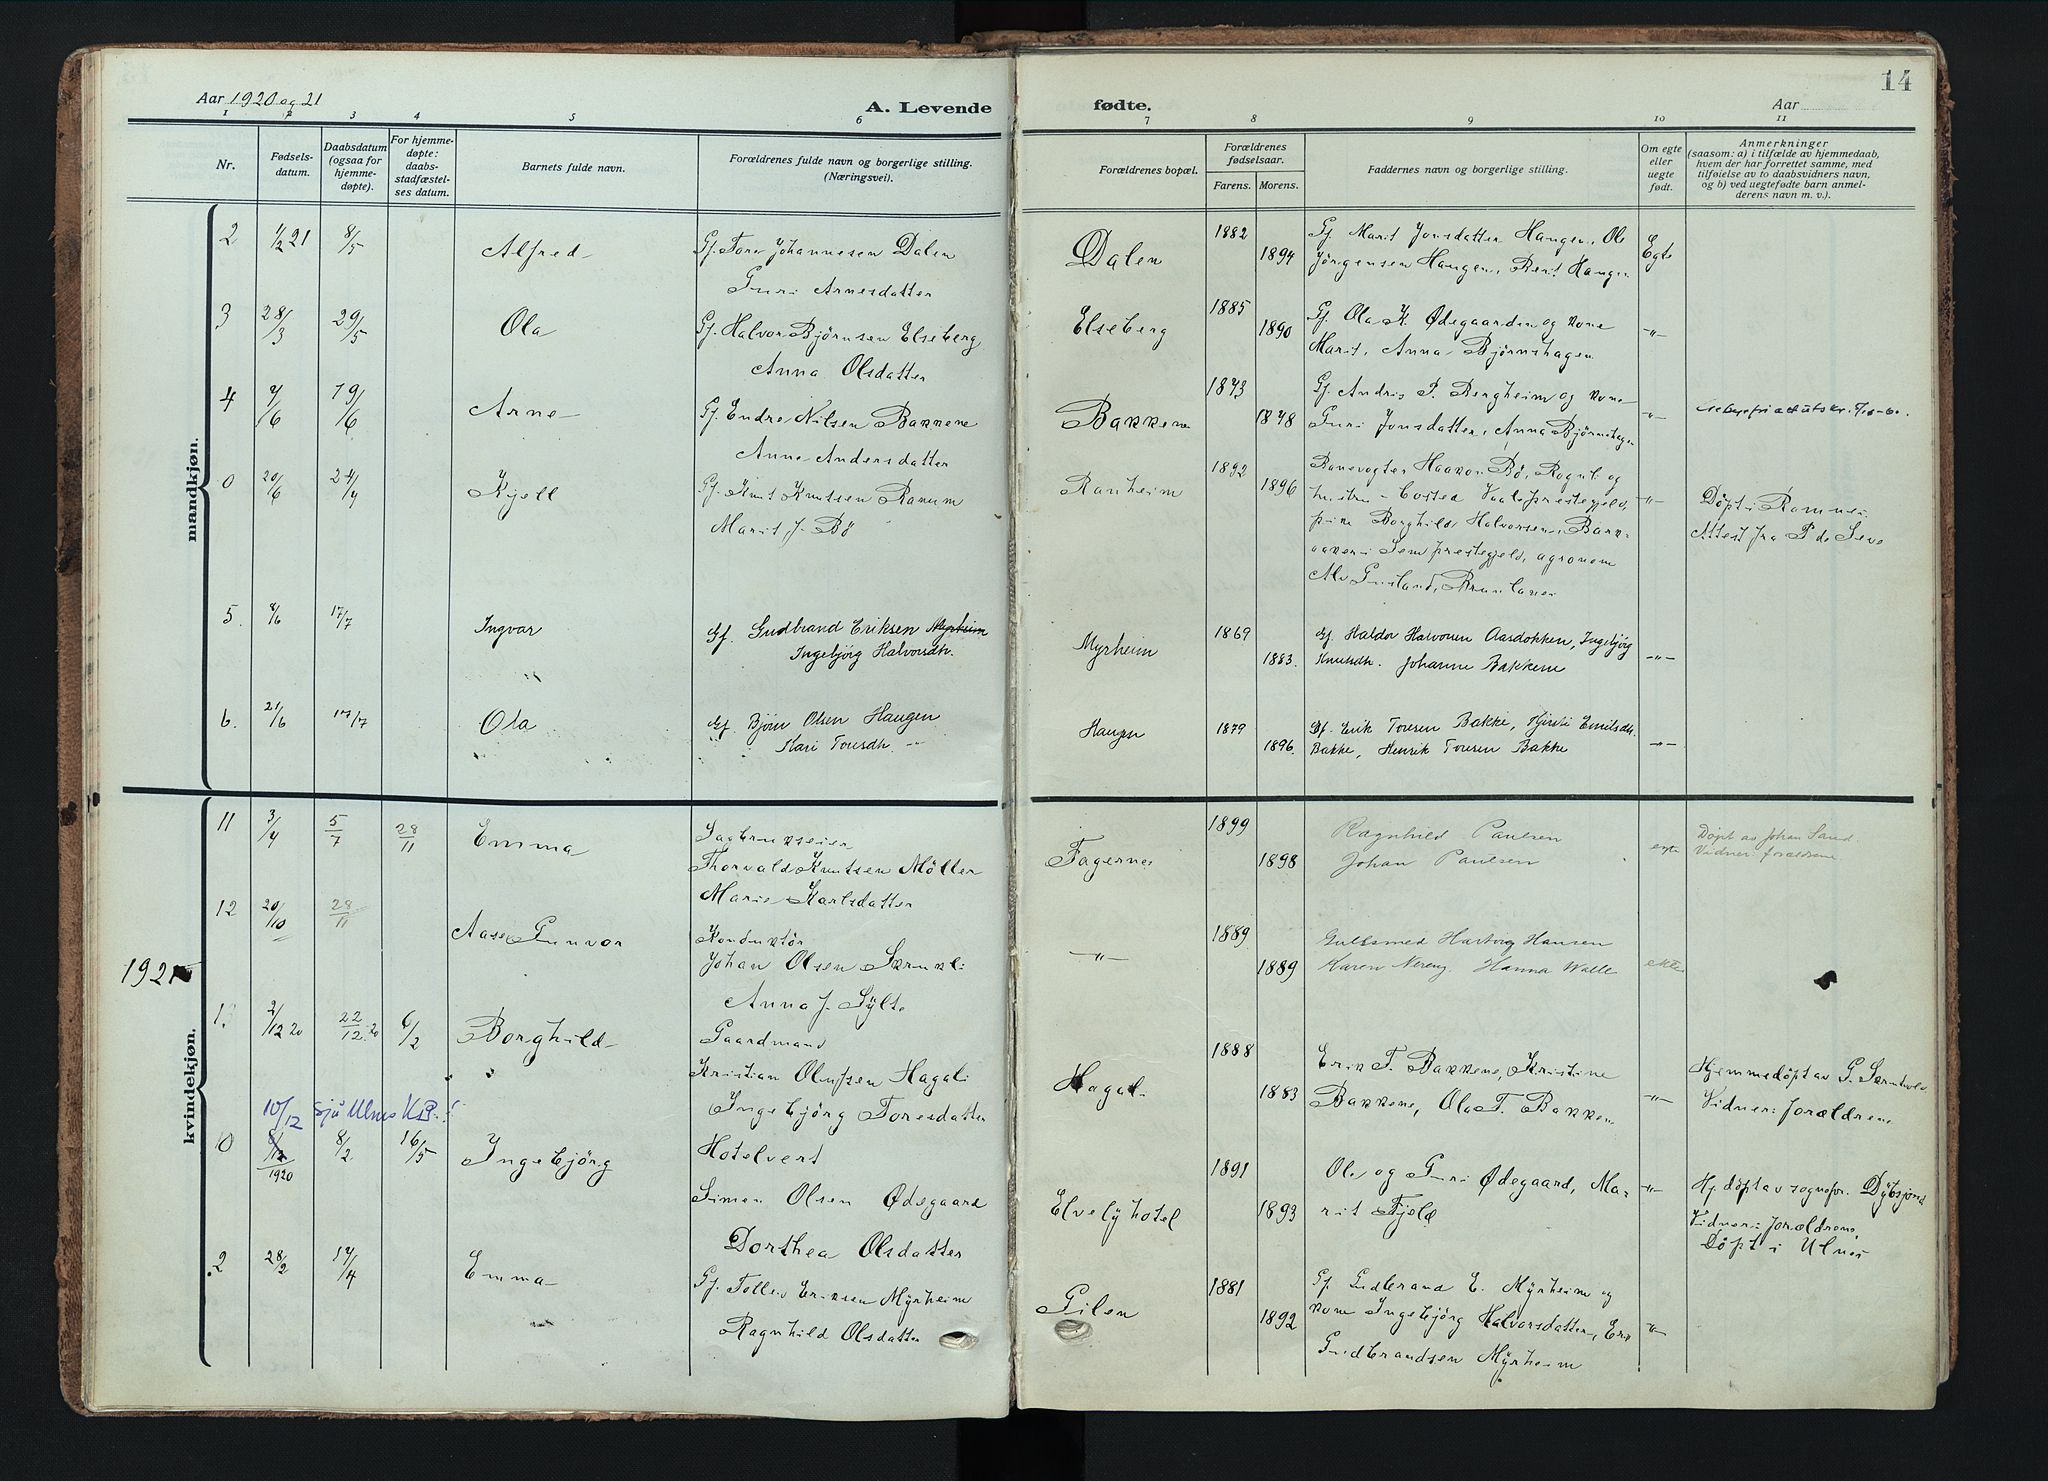 14
Aar 1920 og 21
A. Levende
fødte.
Aar
1 2 3 4 5 6 7 8 9 10 11
Nr.
Fødsels-
datum.
Daabsdatum
(ogsaa for
hjemme-
døpte).
For hjemme-
døpte:
daabs-
stadfæstel-
ses datum.
Barnets fulde navn.
Forældrenes fulde navn og borgerlige stilling.
(Næringsvei).
Forældrenes bopæl.
Forældrenes
fødselsaar.
Farens. Morens.
Faddernes navn og borgerlige stilling.
Om egte
eller
uegte
født.
Anmerkninger
(saasom: a) i tilfælde av hjemmedaab,
hvem der har forrettet samme, med
tilføielse av to daabsvidners navn,
og b) ved uegtefødte barn anmel-
derens navn m. v.).
mandkjøn.
2 1/2 21 8/5 Alfred Gf. Tore Johannesen Dalen
Guri Arnesdatter
Dalen 1882 1894
Gf. Marit Jonsdatter Haugen, Ole
Jörgensen Haugen, Berit Haugen
Egte
3 28/3 29/5 Ola Gf. Halvor Björnsen Elseberg
Anna Olsdatter
Elseberg 1885 1890
Gf. Ola K. Ødegaarden og kone
Marit, Anna Björnshagen
-"-
4 9/6 19/6 Arne Gf. Endre Nilsen Bakkene
Anne Andersdatter
Bakkene 1873 1878
Gf. Andris P. Bergheim og kone
Guri Jonsdatter, Anna Björnshagen
-"-
0 20/6 24/4 Kjell Gf. Knut Knutsen Ranum
Marit J. Bö
Ranheim 1892 1896
Banevogter Haakon Bö, Rognli og
hustru Vaale prestegjeld,
Borghild Halvorsen, Bark-
aaker i Sem prestegjeld, agronom
-"-
Döpt i
Attest fra
5. 8/6 17/7 Ingvar Gf. Gudbrand Eriksen Myrheim
Ingebjörg Halvorsdtr.
Myrheim 1869 1883.
Gf. Haldor Halvorsen Aasdokken, Ingebjörg
Knutsdtr. Johanne Bakkene
-"-
6. 21/6 17/7 Ola Gf. Björn Olsen Haugen
Kari Toresdtr. -"-
Haugen 1879 1896.
Gf. Erik Toresen Bakke, Kjersti Emilsdtr.
Bakke, Henrik Toresen Bakke
-"-
kvindekjøn.
11 3/4 5/7 28/11 Emma Sagbrukseier
Thorvald Knutsen Möller
Marie Karlsdatter
Fagernes 1899 1898
Ragnhild Paulsen
Johan Paulsen
egte
Döpt av Johan Sand.
Vidner: forældrene
12 20/10 28/11 Aase Gunvor Konduktör
Johan Olsen Skrukli
Anna J. Sylte
-"- 1889 1889
Gullsmed Hartvig Hansen
Karen Nereng. Hanna Wolle
ekte
1921
13 2/12 20 22/12 20 6/2 Borghild Gaardmand
Kristian Olufsen Hagali
Ingebjörg Toresdatter
Hagali 1888 1883
Erik T. Bakkene, Kristine
Bakkene, Ola T. Bakkene
-"-
Hjemmedöpt av G.
Vidner: Forældrene
10/12 sju Ulnes K.B.!
0 8/12 1920 8/2 16/5 Ingebjörg Hotelvert
Simen Olsen Ødegaard
Dorthea Olsdatter
Elvely hotel 1891 1893
Ola og Guri Ødegaard, Ma-
rit Fjeld
-"-
Hj. döpt av sognepr. Dybsjord
Vidner: Forældrene.
Döpt i Ulnes
2 28/2 17/4 Emma Gf. Tollev Eriksen Myrheim
Ragnhild Olsdatter
Gilen 1881 1892
Gf. Gudbrand E. Myrheim og
kone Ingebjörg Halvorsdatter, Erik
Gudbrandsen Myrheim
-"-